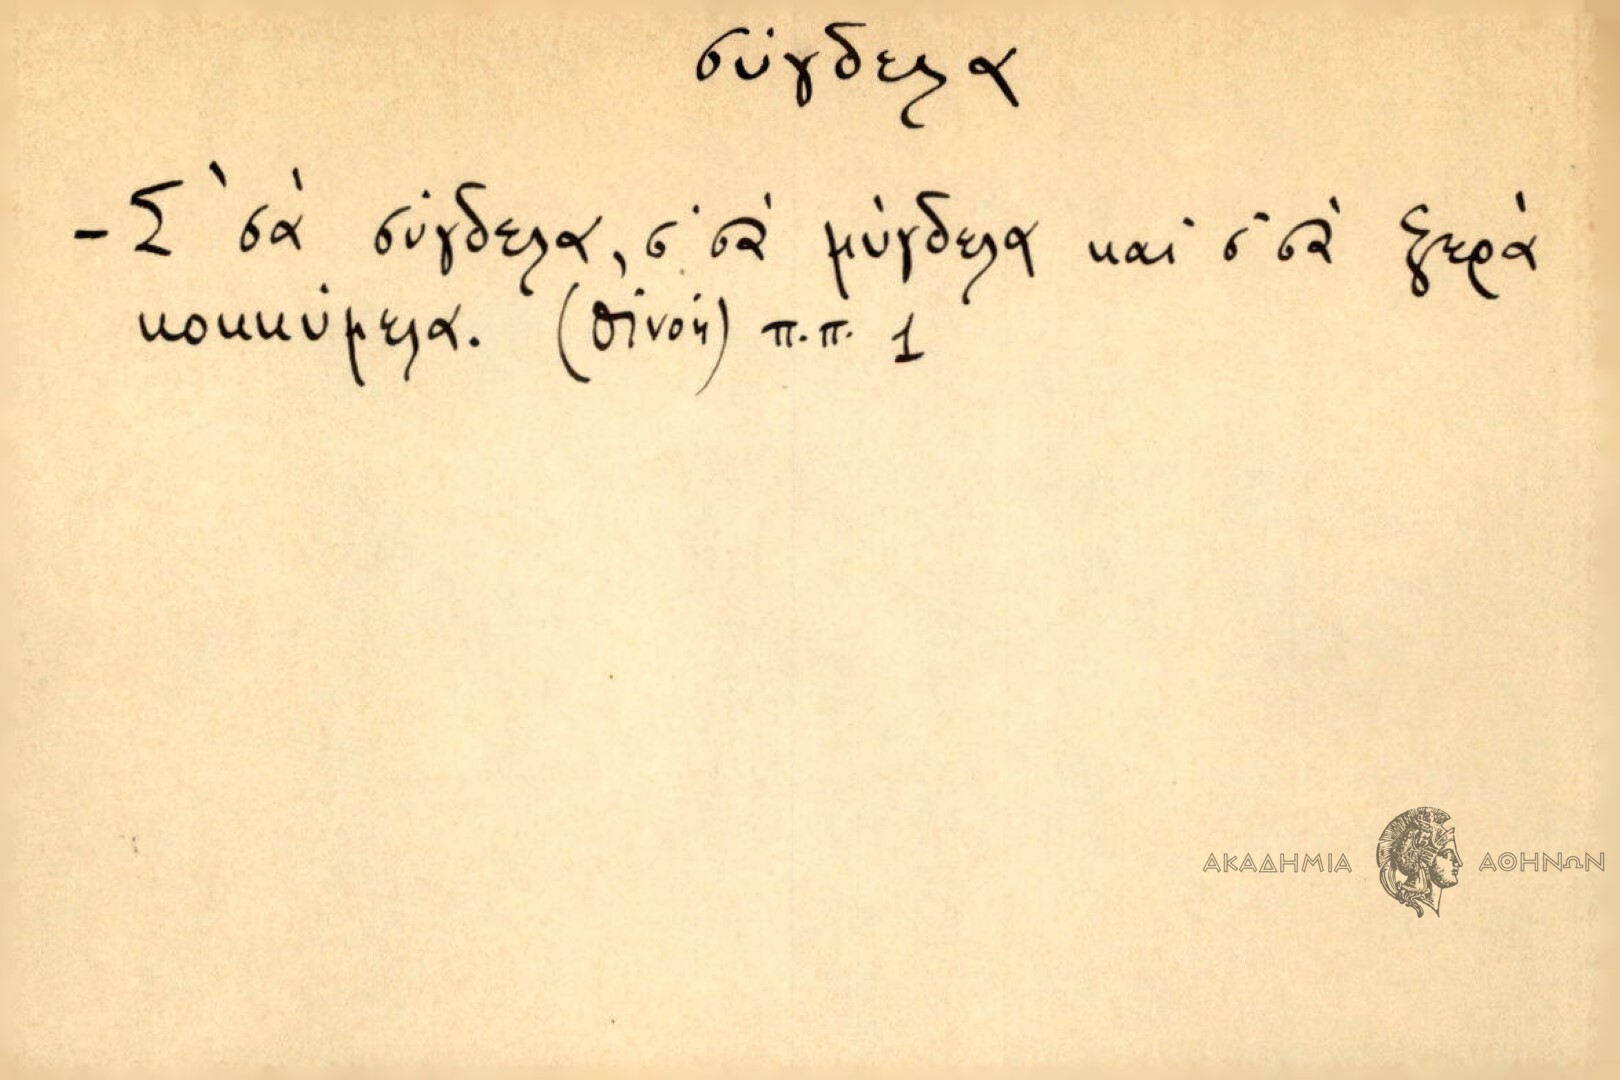 σύγδελα
- Σ' σὰ σύγδελα, σ' σὰ μύγδελα καὶ σ' σὰ ξερὰ
κοκκύμελα. (Οἰνόη) π.π. 1
ΑΚΑΔΗΜΙΑ ΑΘΗΝΩΝ